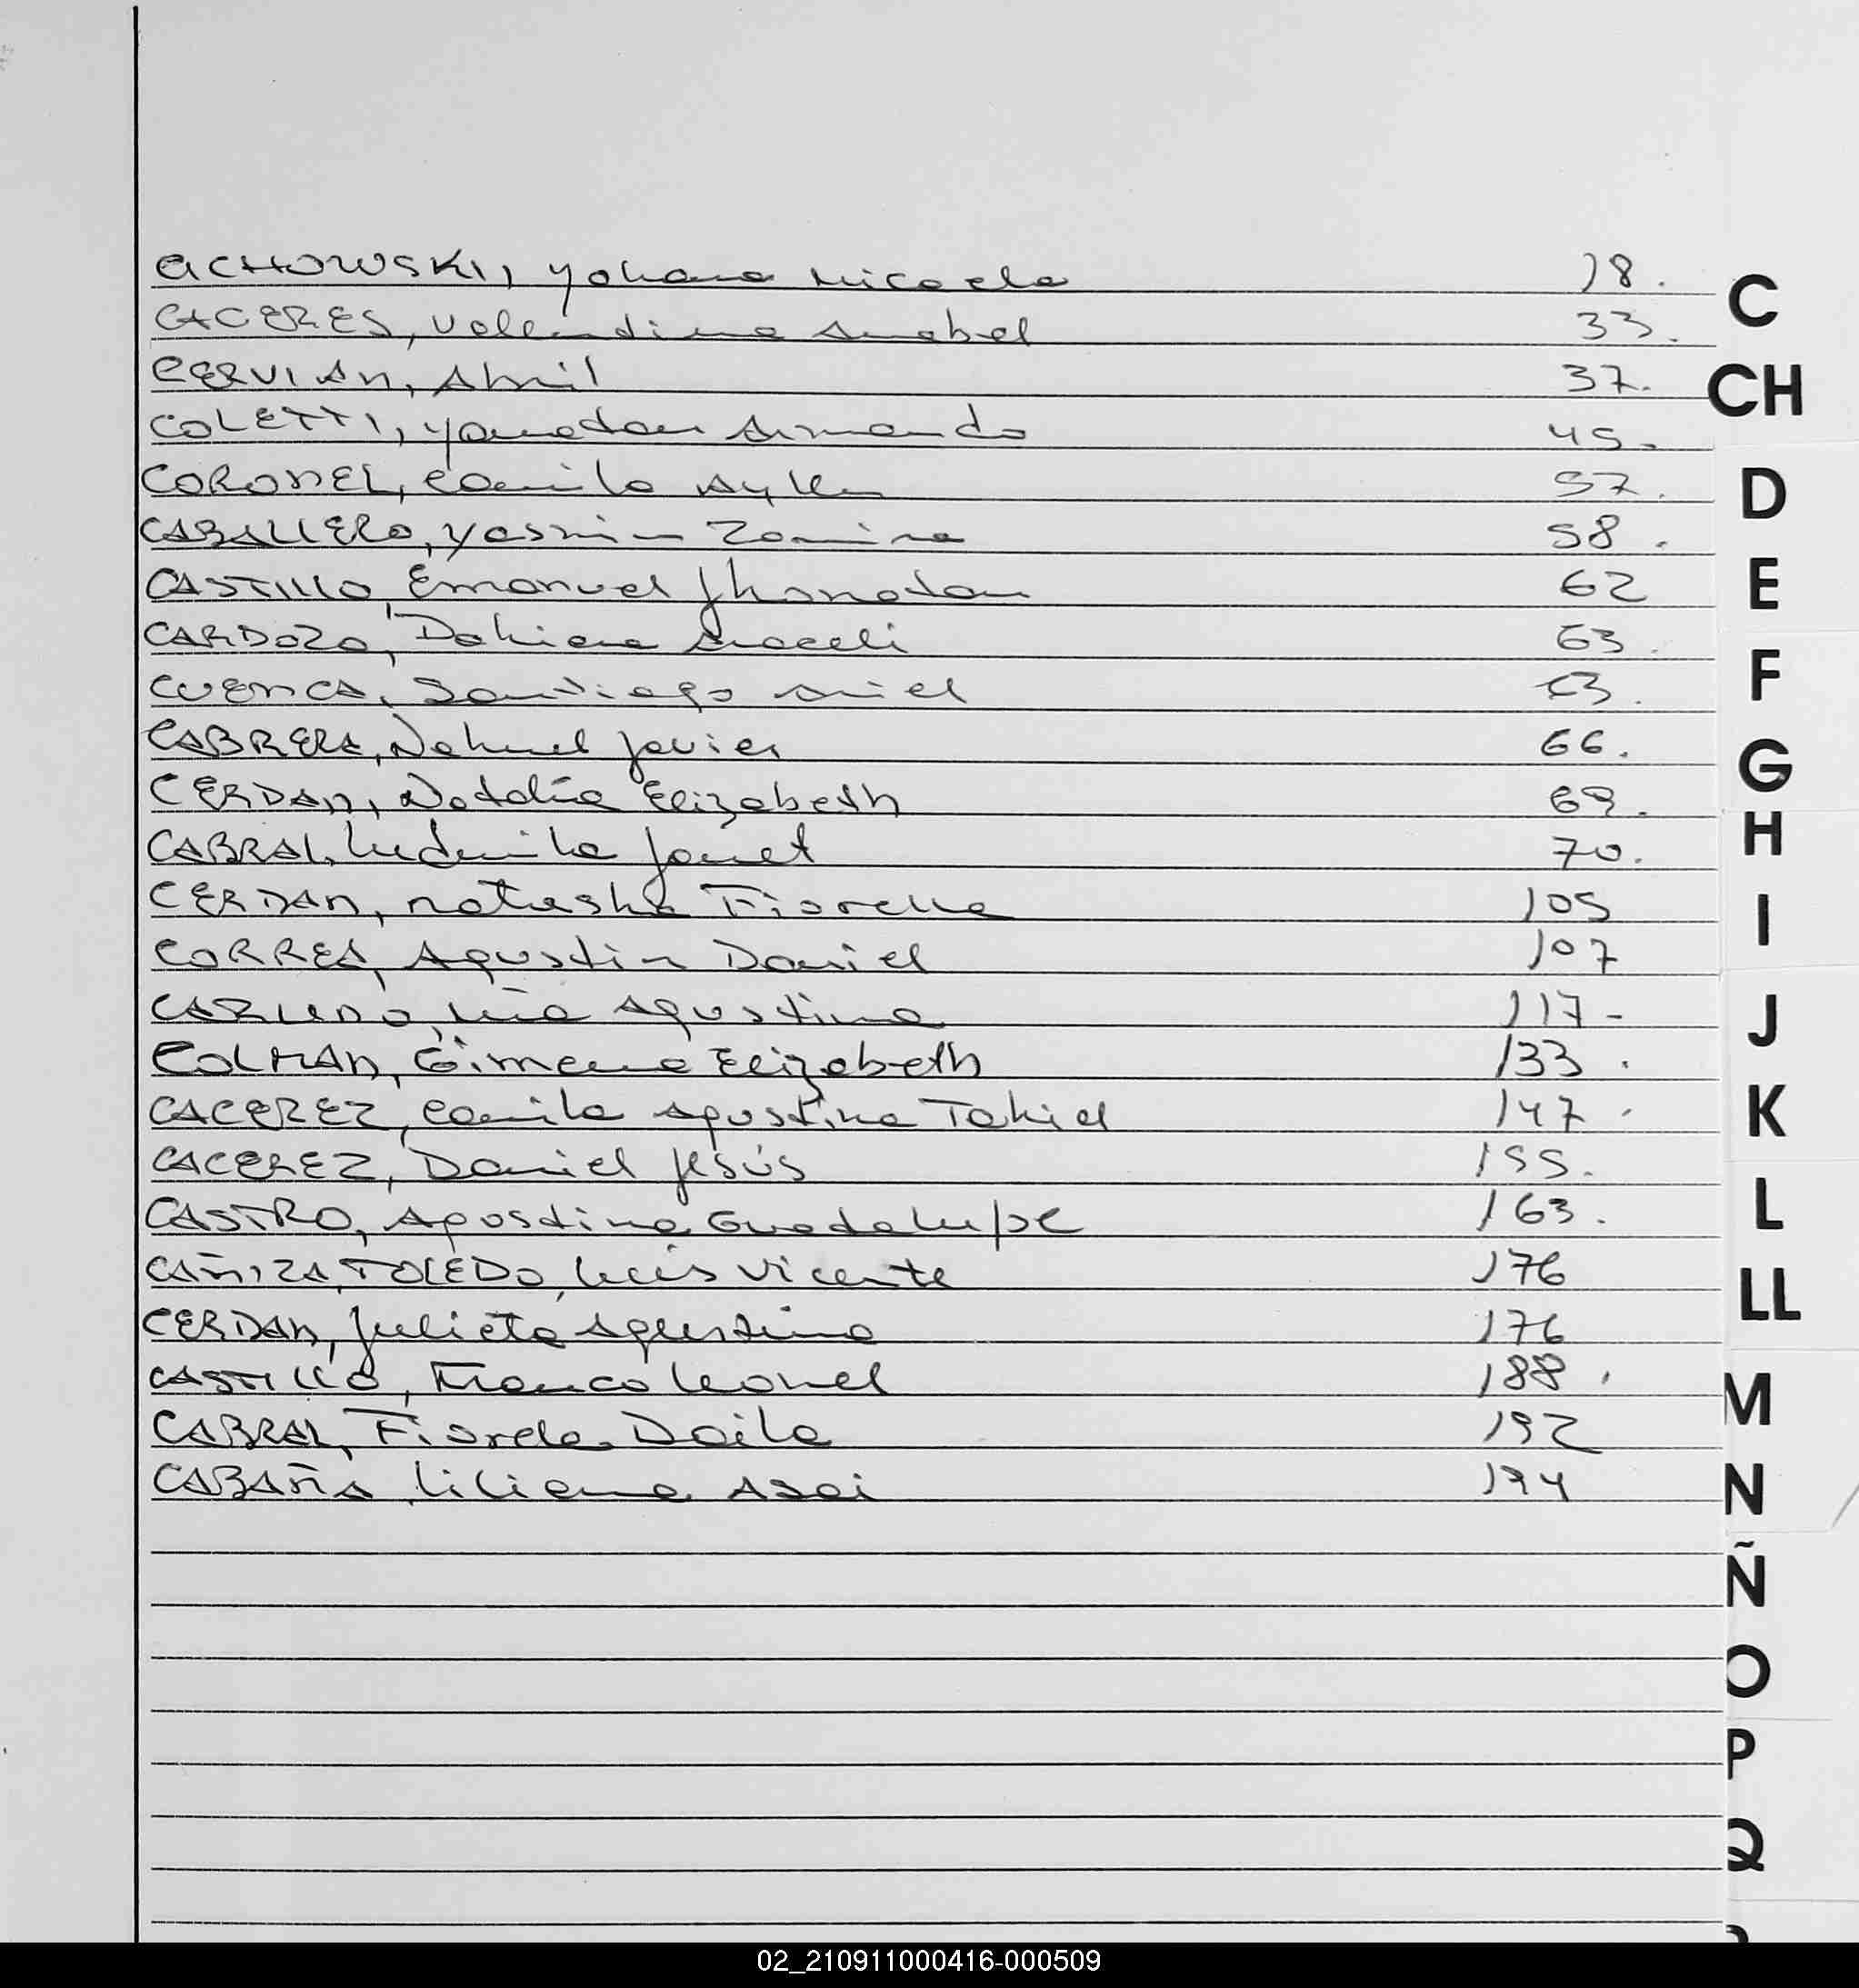 CICHOWSKI, Yohana Micaela 18.
CACERES, Valentina Anabel 33.
CERVIAN, Abril 37.
COLETTI, Yonatan Armando 45.
CORONEL, Camila Aylen 57.
CABALLERO, Yasmin Zamira 58.
CASTILLO, Emanuel Jhonatan 62
CARDOZO, Dahiana Araceli 63.
CUENCA, Santiago Ariel 63.
CABRERA, Nahuel Javier 66.
CERDAN, Natalia Elizabeth 69.
CABRAL, Ludmila Janet 70.
CERDAN, Natasha Fiorella 105
CORREA, Agustin Daniel 107
Mía Agustina 117-
COLMAN, Gimena Elizabeth 133.
CACEREZ, Camila Agustina Tahiel 147.
CACEREZ, Daniel Jesús 155.
CASTRO, Agostina Guadalupe 163.
CAÑIZA TOLEDO, Luis Vicente 176
CERDAN, Julieta Agustina 176
CASTILLO, Franco Leonel 188.
CABRAL, Fiorela Daila 192
CABAÑA Liliana 194
C
CH
D
E
F
G
H
I
J
K
L
LL
M
N
Ñ
O
P
Q
02_210911000416-000509